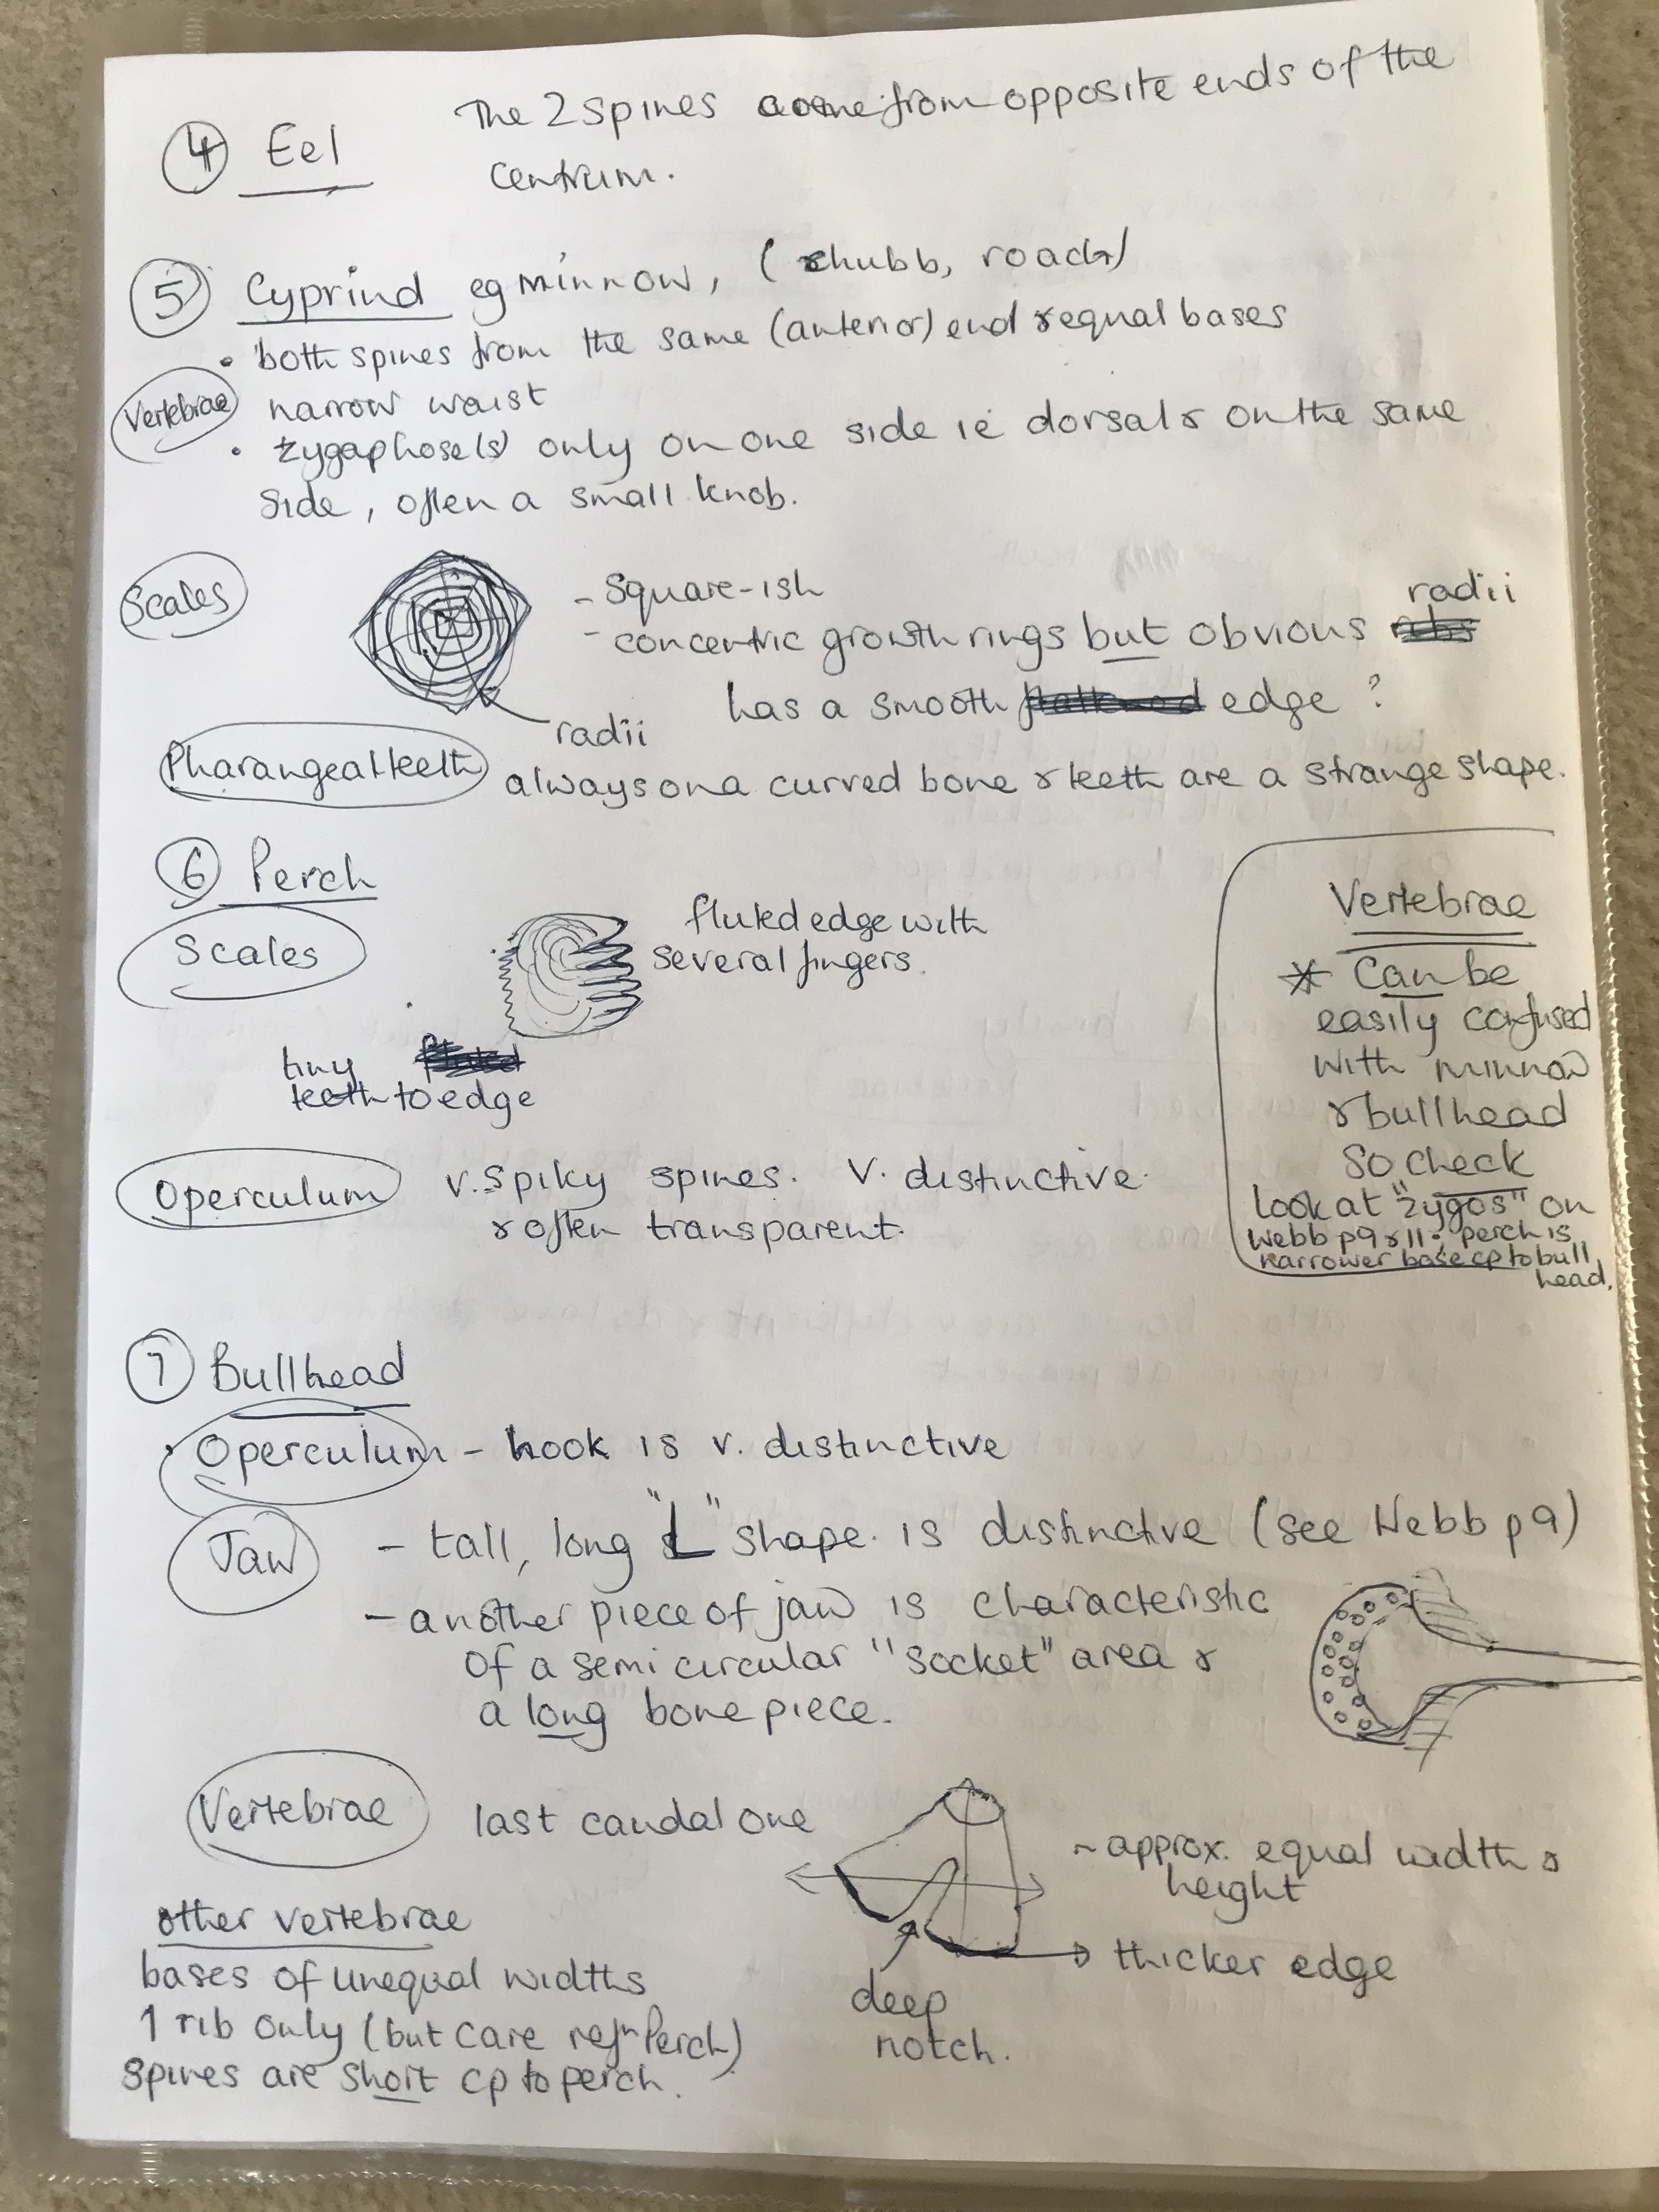 4 Eel
The 2 spines come from opposite ends of the
centrum.
5 Cyprind eg minnow, (chubb, roach)
• both spines from the same (anterior) end & equal bases
Vertebrae
narrow waist
• zygaphose(s) only on one side ie dorsal & on the same
side, often a small knob.
Scales
- Square-ish
- concentric growth rings but obvious radii
has a smooth edge ?
radii
Pharangeal teeth
always on a curved bone & teeth are a strange shape.
6 Perch
Scales
fluted edge with
several fingers.
tiny
teeth to edge
Operculum
v. spiky spines. V. distinctive
& often transparent.
Vertebrae
* Can be
easily confused
with minnow
& bullhead
so check
look at "zygos" on
Webb p9 & 11. perch is
narrower base cp to bull
head.
7 Bullhead
• Operculum - hook is v. distinctive
Jaw
- tall, long "L" shape. is distinctive (see Webb p9)
- another piece of jaw is characteristic
of a semi circular "socket" area &
a long bone piece.
Vertebrae
last caudal one
~ approx. equal width &
height
thicker edge
deep
notch.
other vertebrae
bases of unequal widths
1 rib only (but care refn Perch)
spines are short cp to perch.